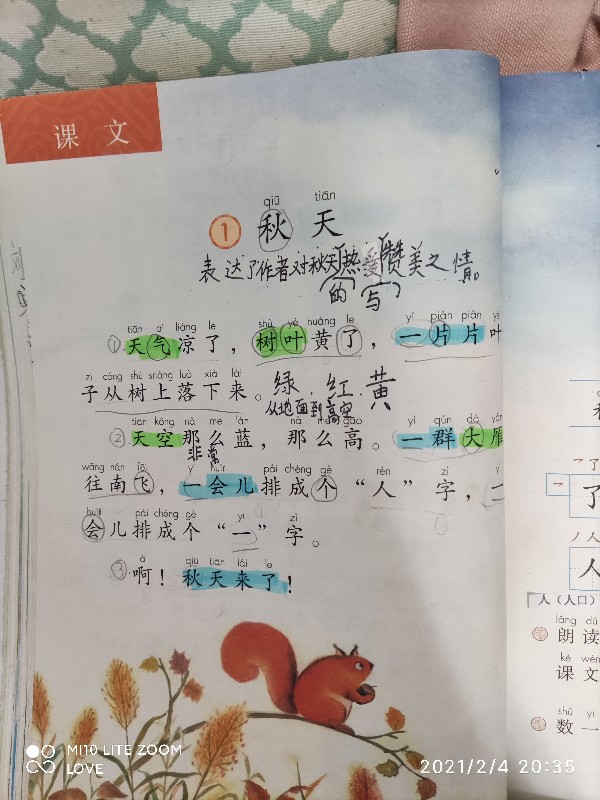 课 文
qiū tiān
1 秋 天
表达了作者对秋天热爱赞美之情。
的 写
tiān qì liáng le shù yè huáng le yí piàn piàn yè
①天气凉了，树叶黄了，一片片叶
zi cóng shù shàng luò xià lái
子从树上落下来。
绿 . 红 . 黄
从地面到高空
tiān kōng nà me lán nà me gāo yì qún dà yàn
②天空那么蓝，那么高。一群大雁
非常
wǎng nán fēi yí huìr pái chéng gè rén zì
往南飞，一会儿排成个“人”字，一
huìr pái chéng gè yī zì
会儿排成个“一”字。
à qiū tiān lái le
③啊！秋天来了！
了
人
人（人口）
lǎng dú
朗读
kè wén
课文
shǔ yi
数一
MI 10 LITE ZOOM
LOVE
2021/2/4 20:35